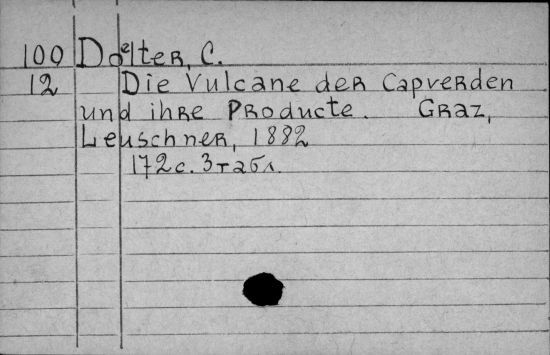 100 Doelter, C.
12 Die Vulcane der Capverden
und ihre Producte. Graz,
Leuschner, 1882
172 с. 3 табл.